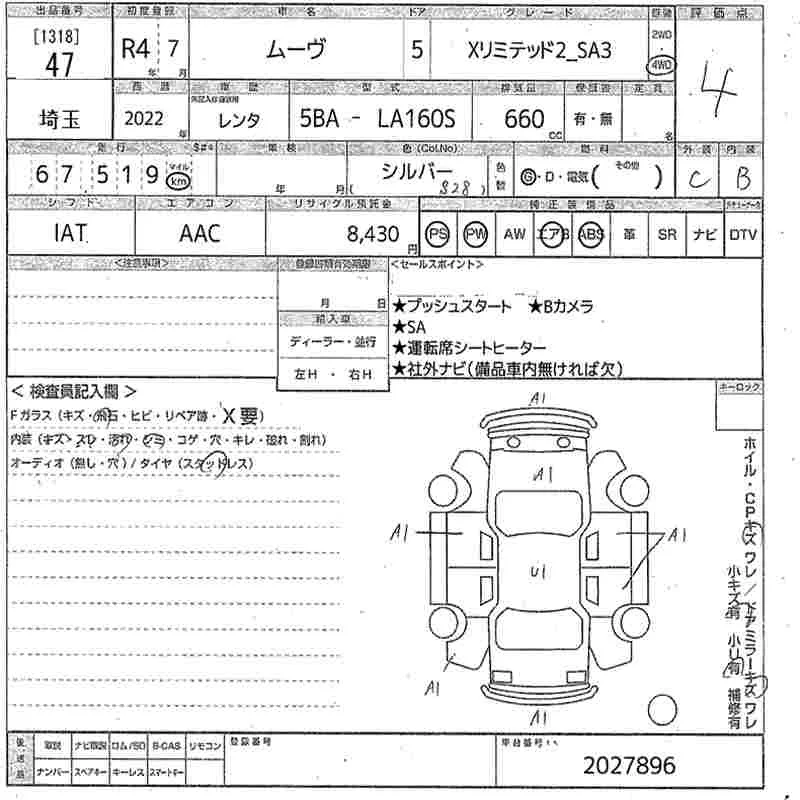 出品番号 初度登録 車名 ドア グレード 駆動 評価点
[1318]
47
R4 7 ムーヴ 5 Xリミテッド2_SA3
2WD
4WD
年 月
4
商談 車歴 型式 排気量 保証書 定員
埼玉 2022 年 レンタ 5BA - LA160S 660 CC 有・無 名
走行 車検 色(Col.No) 燃料 外装 内装
67,519 マイル km 年 月 シルバー (S28) 色替 G・D・電気( その他 ) C B
シフト エアコン リサイクル預託金 純正装備品
IAT AAC 8,430 円 PS PW AW エアB ABS 革 SR ナビ DTV
<注意事項> 登録時期有効期限 <セールスポイント>
月 日
★プッシュスタート ★Bカメラ
輸入車
★SA
ディーラー・並行 ★運転席シートヒーター
左H ・ 右H ★社外ナビ(備品車内無ければ欠)
< 検査員記入欄 > キーロック
Fガラス (キズ・飛石・ヒビ・リペア跡・X要)
内装 (キズ・スレ・汚れ・シミ・コゲ・穴・キレ・破れ・割れ)
オーディオ (無し・穴) / タイヤ (スタッドレス)
A1
A1
A1 A1
U1
A1
A1
ホイル・CPキズ ワレ / ドアミラーキズ ワレ
小キズ有 小U有 補修有
後送品 取説 ナビ取説 ロム/SD B-CAS リモコン 登録番号 車台番号
ナンバー スペアキー キーレス スマートキー 2027896